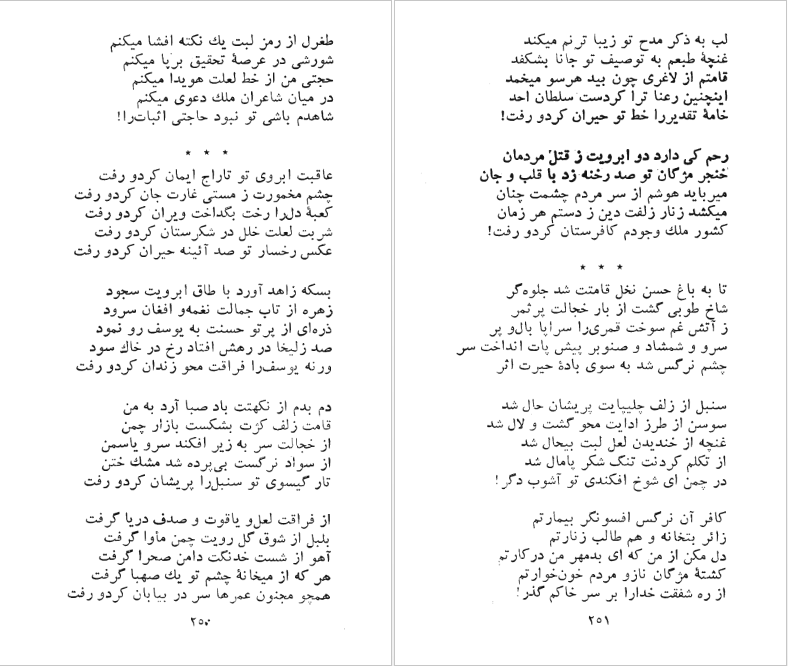 طغرل از رمز لبت یك نکته افشا میکنم
شورشی در عرصهٔ تحقیق برپا میکنم
حجتی من از خط لعلت هویدا میکنم
در میان شاعران ملك دعوی میکنم
شاهدم باشی تو نبود حاجتی اثبات‌را!
* * *
عاقبت ابروی تو تاراج ایمان کردو رفت
چشم مخمورت ز مستی غارت جان کردو رفت
کعبهٔ دل‌را رخت بگداخت ویران کردو رفت
شربت لعلت خلل در شکرستان کردو رفت
عکس رخسار تو صد آئینه حیران کردو رفت
بسکه زاهد آورد با طاق ابرویت سجود
زهره از تاب جمالت نغمه‌و افغان سرود
ذره‌ای از پرتو حسنت به یوسف رو نمود
صد زلیخا در رهش افتاد رخ در خاك سود
ورنه یوسف‌را فراقت محو زندان کردو رفت
دم بدم از نکهتت باد صبا آرد به من
قامت زلف کژت بشکست بازار چمن
از خجالت سر به زیر افکند سرو یاسمن
از سواد نرگست بی‌پرده شد مشك ختن
تار گیسوی تو سنبل‌را پریشان کردو رفت
از فراقت لعل‌و یاقوت و صدف دریا گرفت
بلبل از شوق گل رویت چمن ماوا گرفت
آهو از شست خدنگت دامن صحرا گرفت
هر که از میخانهٔ چشم تو یك صهبا گرفت
همچو مجنون عمرها سر در بیابان کردو رفت
۲۵۰
لب به ذکر مدح تو زیبا ترنم میکند
غنچهٔ طبعم به توصیف تو جانا بشکفد
قامتم از لاغری چون بید هرسو میخمد
اینچنین رعنا ترا کردست سلطان احد
خامهٔ تقدیررا خط تو حیران کردو رفت!
رحم کی دارد دو ابرویت ز قتل مردمان
خنجر مژگان تو صد رخنه زد با قلب و جان
میرباید هوشم از سر مردم چشمت چنان
میکشد زنار زلفت دین ز دستم هر زمان
کشور ملك وجودم کافرستان کردو رفت!
* * *
تا به باغ حسن نخل قامتت شد جلوه‌گر
شاخ طوبی گشت از بار خجالت پرثمر
ز آتش غم سوخت قمری‌را سراپا بال‌و پر
سرو و شمشاد و صنوبر پیش پات انداخت سر
چشم نرگس شد به سوی بادهٔ حیرت اثر
سنبل از زلف چلیپایت پریشان حال شد
سوسن از طرز ادایت محو گشت و لال شد
غنچه از خندیدن لعل لبت بیحال شد
از تکلم کردنت تنگ شکر پامال شد
در چمن ای شوخ افکندی تو آشوب دگر!
کافر آن نرگس افسونگر بیمارتم
زائر بتخانه و هم طالب زنارتم
دل مکن از من که ای بدمهر من درکارتم
کشتهٔ مژگان نازو مردم خون‌خوارتم
از ره شفقت خدارا بر سر خاکم گذر!
۲۵۱